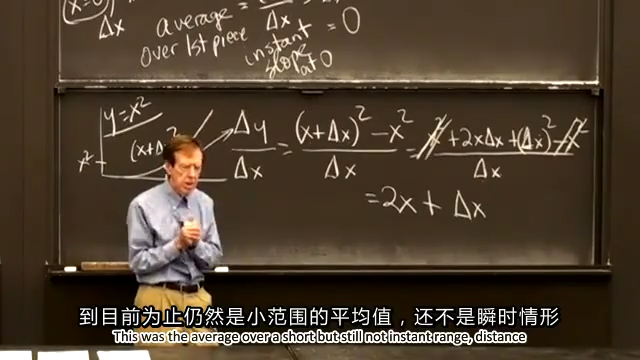 x=0
Δx
average
over 1st piece
Δx
= 0
instant
slope
at 0
y=x²
x²
Δy/Δx = ((x+Δx)² - x²)/Δx = (x² + 2xΔx + (Δx)² - x²)/Δx
= 2x + Δx
到目前为止仍然是小范围的平均值，还不是瞬时情形
This was the average over a short but still not instant range, distance